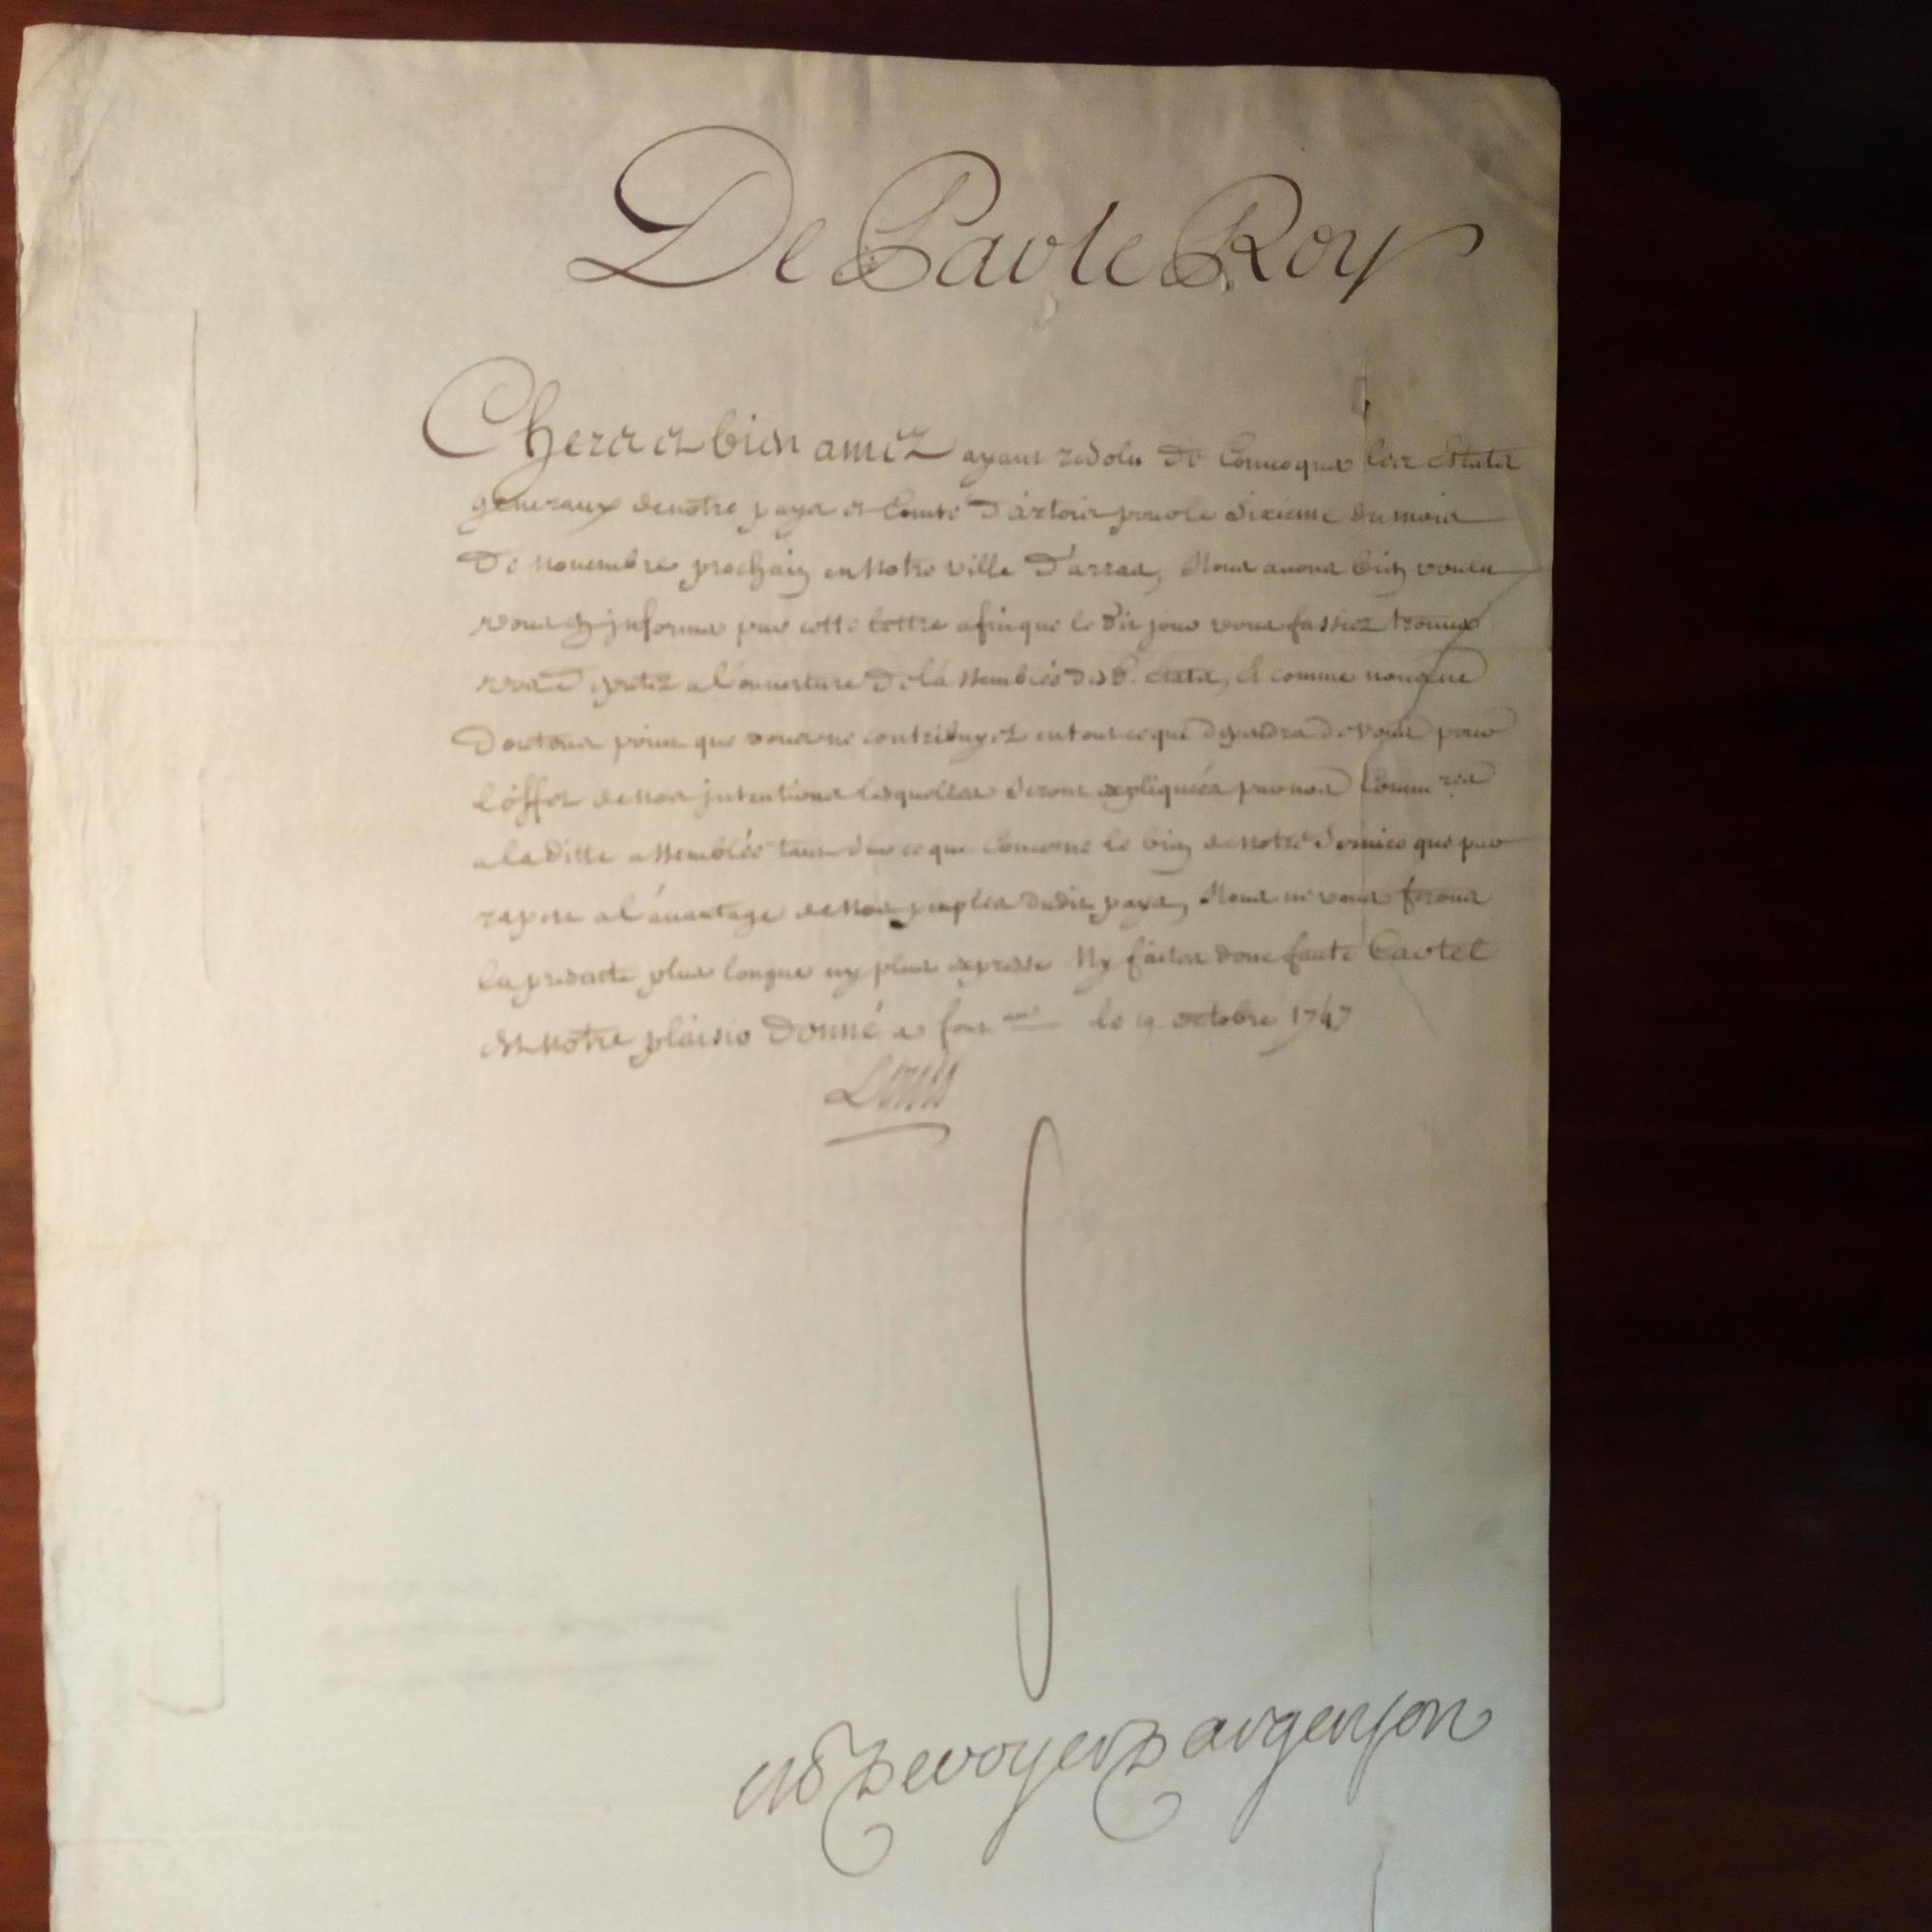 De Par le Roy
Chers et bien amez ayant resolu de Convoquer les Estats
generaux de notre pays et Comté d'artois pour le Sixieme du mois
De novembre prochain en notre ville D'arras, Nous avons bien voulu
vous en jnformer par cette lettre afin que le dit jour vous fassiez trouver
vos Deputez a l'ouverture De lassemblée des E. etats, Et comme nous ne
Doutons point que vous ne contribuyez en tout ce qui dependra de vous pour
l'éffet de nos jntentions lesquelles seront expliquées par nos Comm.res
a la ditte assemblée tant sur ce qui Concerne le bien de notre Service que par
raport a l'avantage de nos peuples dudit pays, Nous ne vous ferons
la presente plus longue ny plus expresse Ny faites donc faute Car tel
est notre plaisir Donné a font.au le 19 octobre 1747
Louis
De voyer D argenson